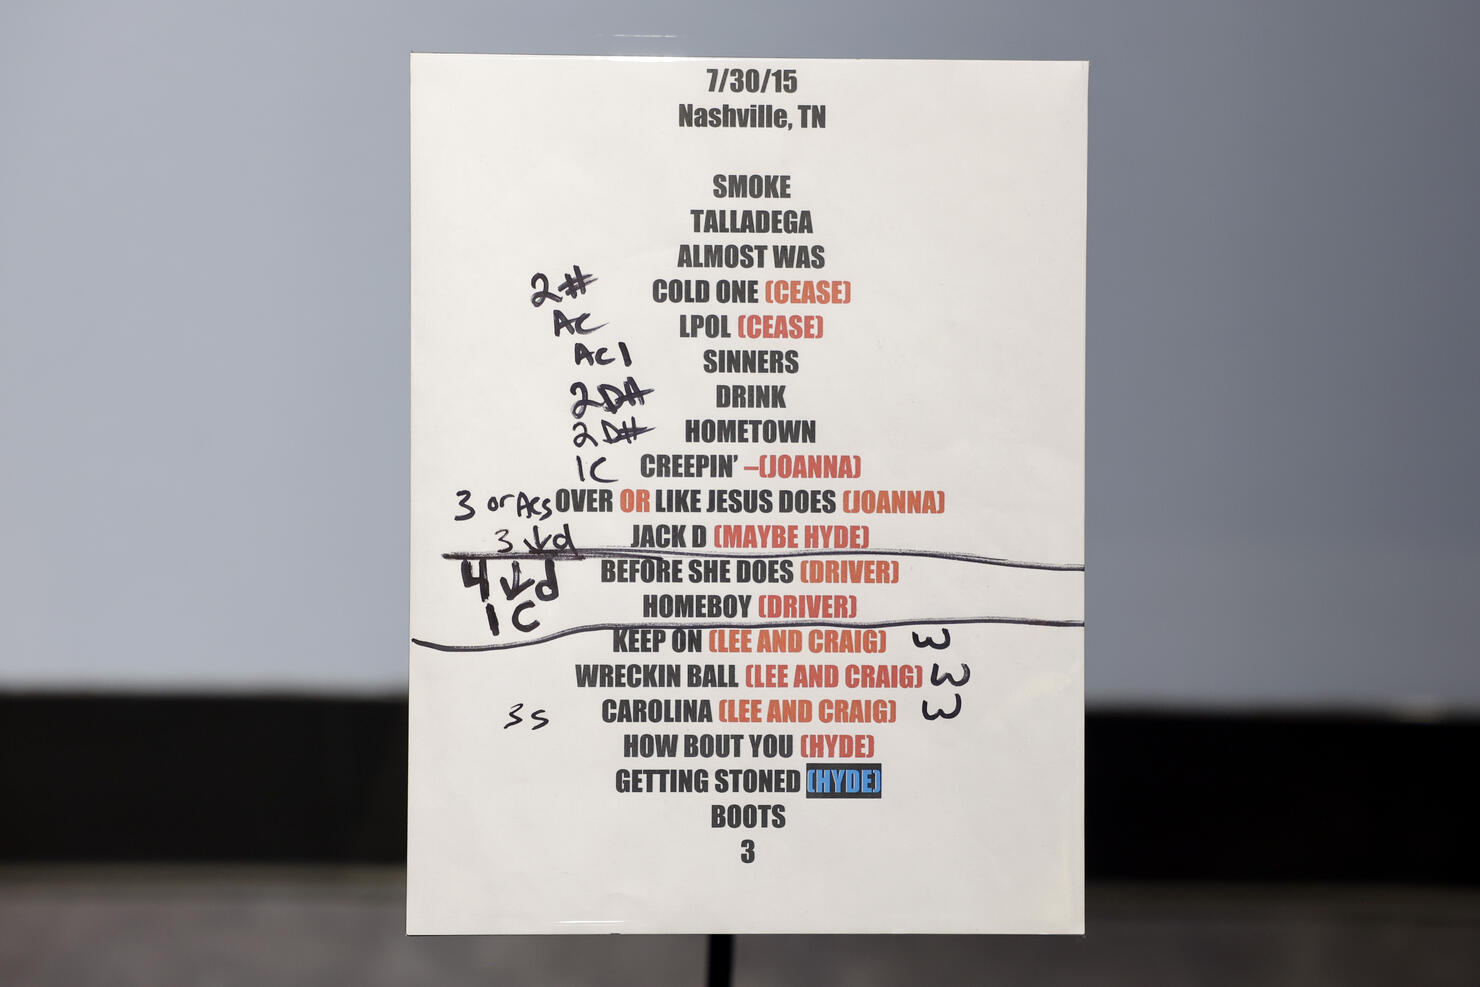 7/30/15
Nashville, TN
SMOKE
TALLADEGA
ALMOST WAS
2# COLD ONE (CEASE)
AC LPOL (CEASE)
AC1 SINNERS
2D# DRINK
2D# HOMETOWN
1C CREEPIN' –(JOANNA)
3 or ACS OVER OR LIKE JESUS DOES (JOANNA)
3 ↓d JACK D (MAYBE HYDE)
4 ↓d BEFORE SHE DOES (DRIVER)
1C HOMEBOY (DRIVER)
KEEP ON (LEE AND CRAIG) 3
WRECKIN BALL (LEE AND CRAIG) 3
3S CAROLINA (LEE AND CRAIG) 3
HOW BOUT YOU (HYDE)
GETTING STONED (HYDE)
BOOTS
3